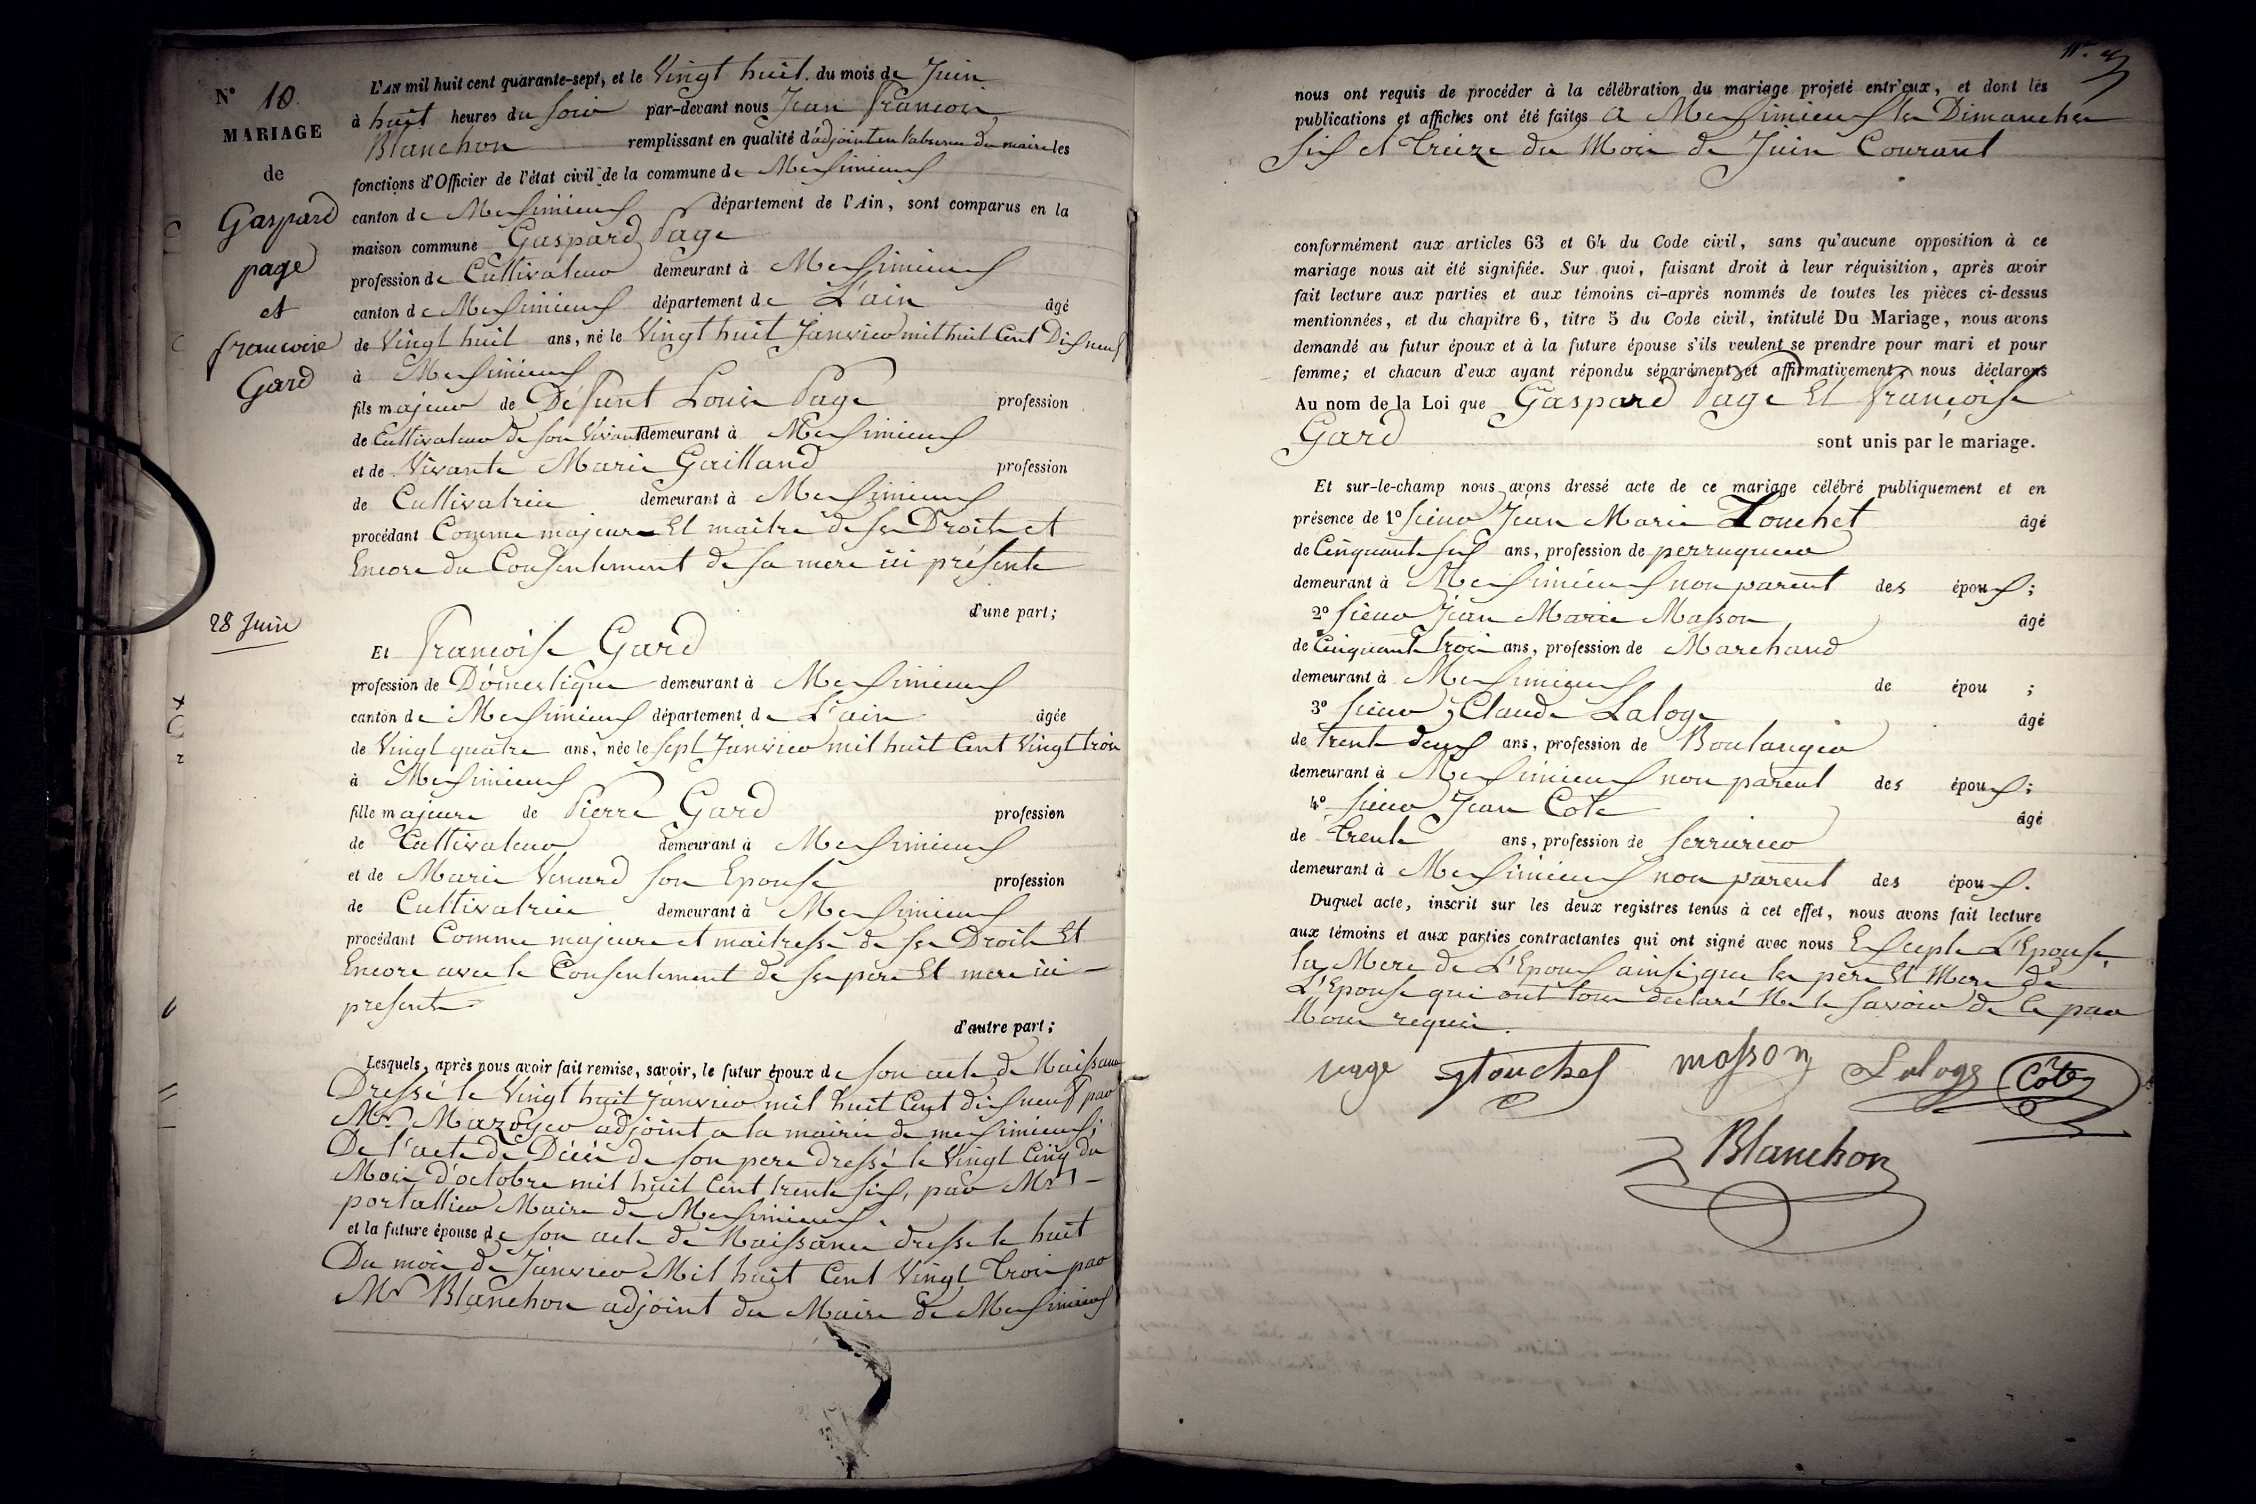 N° 10.
MARIAGE
de
Gaspard
page
et
francoise
Gard
28 Juin
L'AN mil huit cent quarante-sept, et le Vingt huit du mois de Juin
à huit heures du Soir par-devant nous Jean francois
Blanchon remplissant en qualité d'adjoint en l'absence du maire les
fonctions d'Officier de l'état civil de la commune de Meximieux
canton de Meximieux département de l'Ain, sont comparus en la
maison commune Gaspard Page
profession de Cultivateur demeurant à Meximieux
canton de Meximieux département de L'ain âgé
de Vingt huit ans, né le Vingt huit Janvier mil huit Cent Dix neuf
à Meximieux
fils majeur de Défunt Louis Page profession
de Cultivateur de son Vivant demeurant à Meximieux
et de Vivante Marie Gaillard profession
de Cultivatrice demeurant à Meximieux
procédant Comme majeur Et maître de ses Droits et
Encore du Consentement de sa mere ici présente
d'une part;
Et francoise Gard
profession de Domestique demeurant à Meximieux
canton de Meximieux département de L'ain âgée
de Vingt quatre ans, née le Sept Janvier mil huit Cent Vingt trois
à Meximieux
fille majeure de Pierre Gard profession
de Cultivateur demeurant à Meximieux
et de Marie Venard son Epouse profession
de Cultivatrice demeurant à Meximieux
procédant Comme majeure et maitresse de ses Droits Et
Encore avec le Consentement de ses père Et mere ici
presents
d'autre part;
Lesquels, après nous avoir fait remise, savoir, le futur époux de son acte de Naissance
Dressé le Vingt huit Janvier mil huit Cent dix neuf par
Mr. Mazoyer adjoint a la mairie de meximieux;
De l'acte de Décès de son pere dressé le Vingt Cinq du
Mois d'octobre mil huit Cent trente six, par Mr
portallier Maire de Meximieux.
et la future épouse de son acte de Naissance dressé le huit
Du mois de Janvier Mil huit Cent Vingt trois par
Mr Blanchon adjoint du Maire de Meximieux
nous ont requis de procéder à la célébration du mariage projeté entr'eux, et dont les
publications et affiches ont été faites a Meximieux les Dimanches
Six et treize du Mois de Juin Courant
conformément aux articles 63 et 64 du Code civil, sans qu'aucune opposition à ce
mariage nous ait été signifiée. Sur quoi, faisant droit à leur réquisition, après avoir
fait lecture aux parties et aux témoins ci-après nommés de toutes les pièces ci-dessus
mentionnées, et du chapitre 6, titre 5 du Code civil, intitulé Du Mariage, nous avons
demandé au futur époux et à la future épouse s'ils veulent se prendre pour mari et pour
femme; et chacun d'eux ayant répondu séparément et affirmativement, nous déclarons
Au nom de la Loi que Gaspard Page Et françoise
Gard sont unis par le mariage.
Et sur-le-champ nous avons dressé acte de ce mariage célébré publiquement et en
présence de 1° sieur Jean Marie Touchet âgé
de Cinquante six ans, profession de perruquier
demeurant à Meximieux non parent des époux;
2° sieur Jean Marie Masson âgé
de Cinquante trois ans, profession de Marchand
demeurant à Meximieux de épou ;
3° sieur Claude Laloge âgé
de trente deux ans, profession de Boulanger
demeurant à Meximieux non parent des époux;
4° sieur Jean Cote âgé
de trente ans, profession de serrurier
demeurant à Meximieux non parent des époux.
Duquel acte, inscrit sur les deux registres tenus à cet effet, nous avons fait lecture
aux témoins et aux parties contractantes qui ont signé avec nous Excepté L'Epouse,
la Mere de L'Epoux ainsi que les père Et Mere de
L'Epouse qui ont tous declaré Ne le savoir de Ce par
Nous requis.
page Touchet masson Laloge Cote
Blanchon